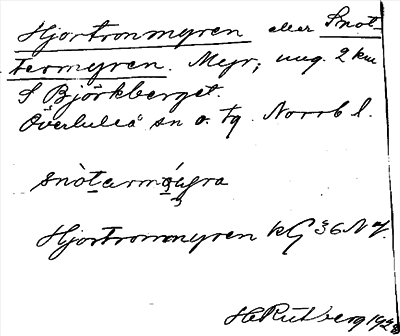 Hjortronmyren eller Snot-
termyren. Myr, ung. 2 km
S Björkberget.
Överluleå sn o. tg. Norrb l.
snòtarmy̨ra
Hjortronmyren kG 36 N
H Rutberg